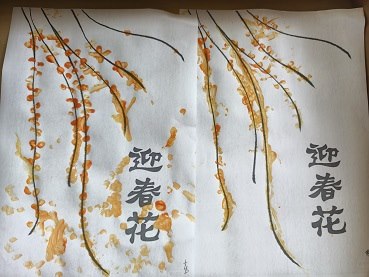 迎春花
迎春花